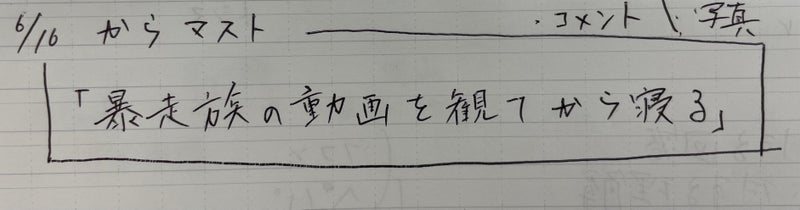 6/16 からマスト ・コメント 写真
「暴走族の動画を観てから寝る」